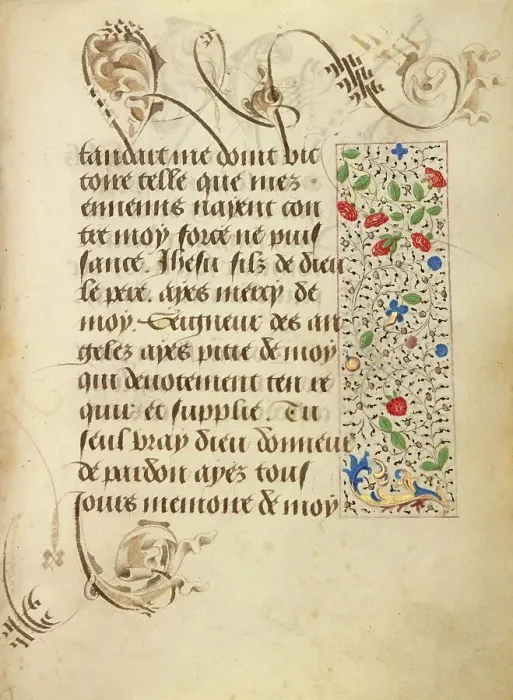 tandart me doint vic
toire telle que mez
ennemis nayent con
tre moy force ne puis
sance. Ihesu filz de dieu
le pere. ayes mercy de
moy. Seigneur des an
gelez ayes pitie de moy
qui deuotement ten re
quir et supplie. Tu
seul vray dieu donneur
de pardon ayez tous
iours memoire de moy